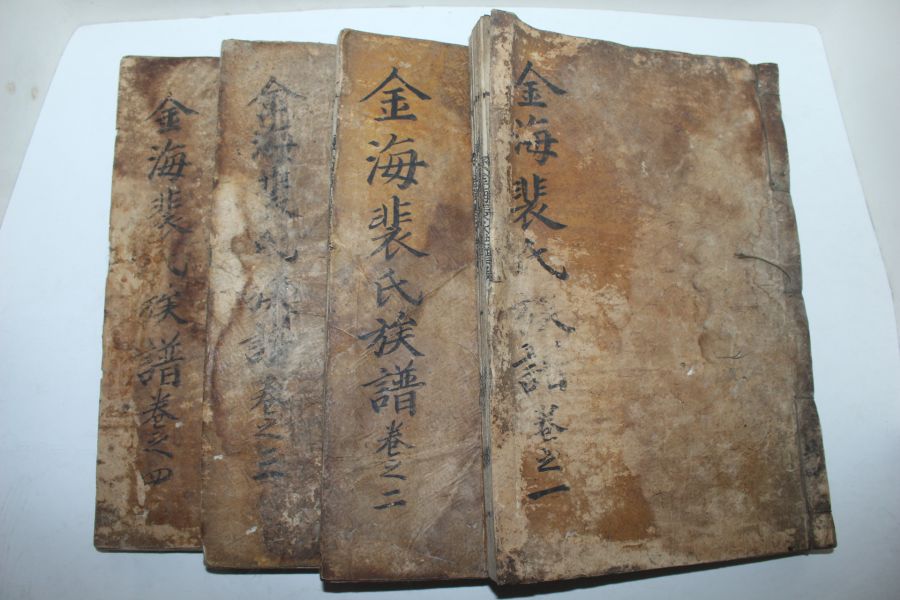 金海裴氏族譜 卷之一
金海裴氏族譜 卷之二
金海裴氏族譜 卷之三
金海裴氏族譜 卷之四